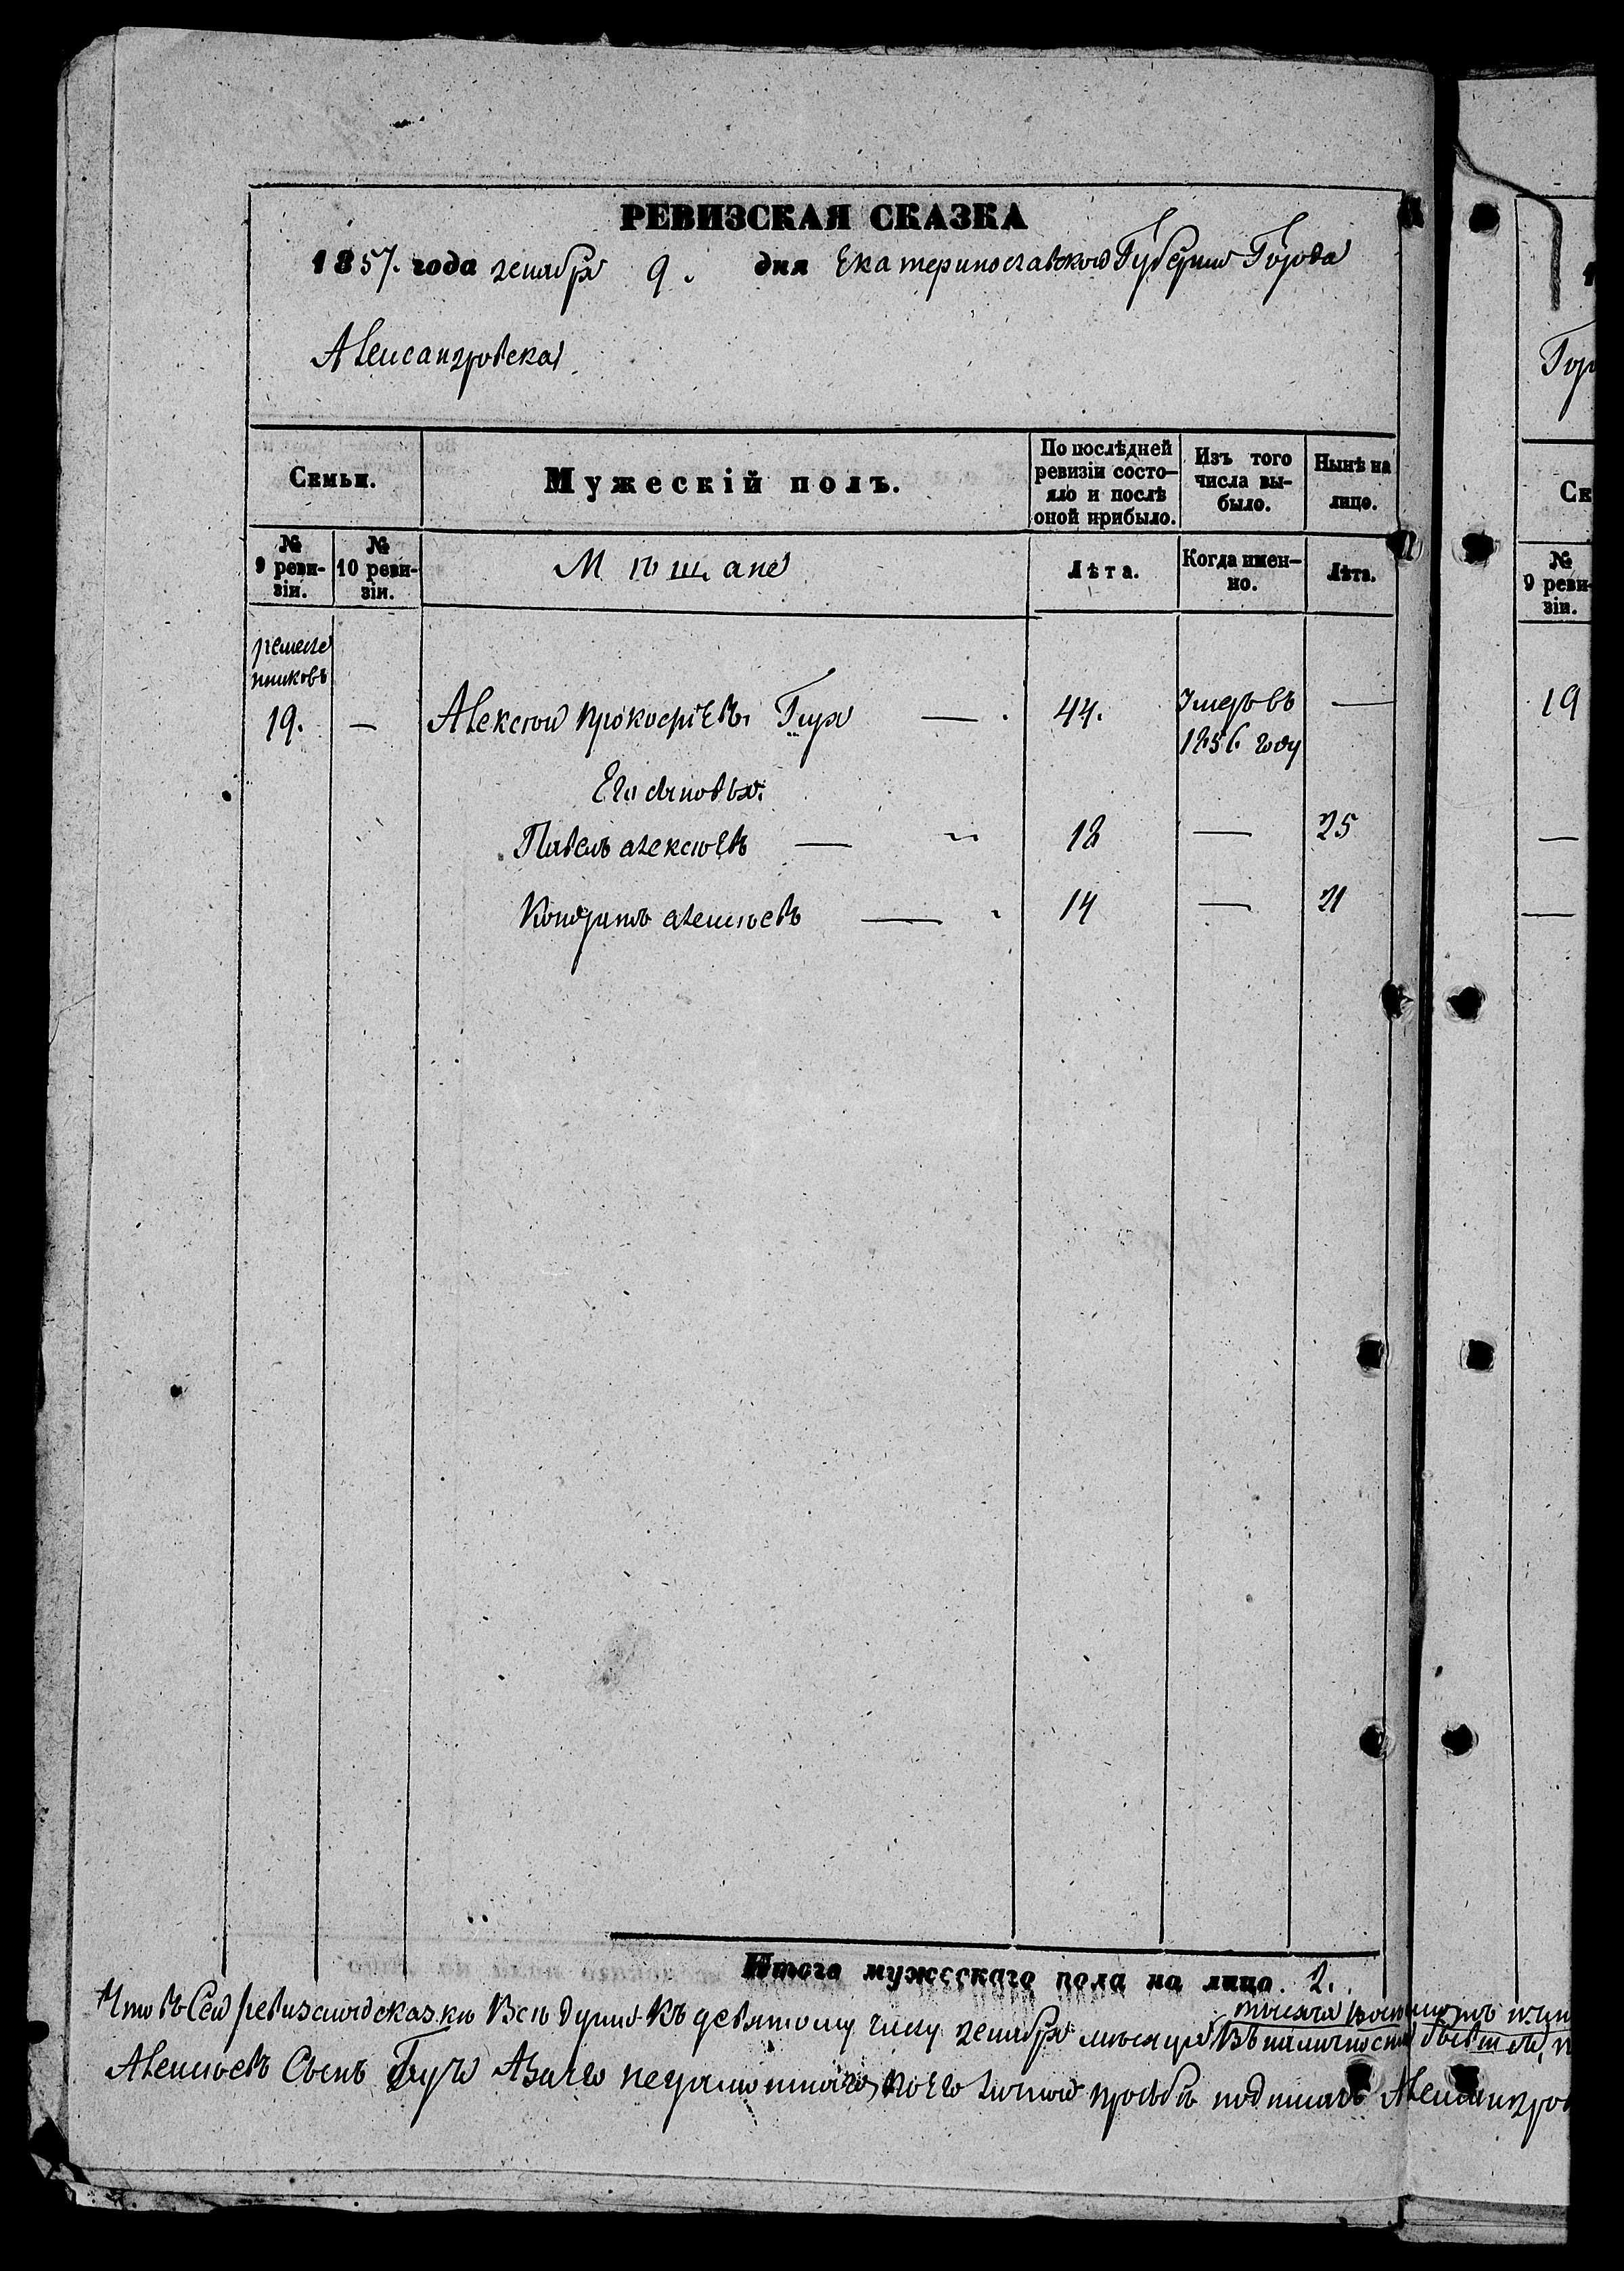 РЕВИЗСКАЯ СКАЗКА
1857. года декабря 9. дня Екатеринославской Губернии Города
Александровска
Семьи.
Мужескій полъ.
По послѣдней ревизіи состо-
яло и послѣ оной прибыло.
Изъ того числа вы-
было.
Нынѣ на лицо.
№ 9 реви-
зіи.
№ 10 реви-
зіи.
Мѣщане
Лѣта.
Когда имен-
но.
Лѣта.
ремесле
нниковъ
19. — Алексѣй Прокофіевъ — 44. Умеръ въ —
1856 году
Его сыновья:
Павелъ Алексѣевъ — 18 — 25
Кондратъ Алексѣевъ — 14 — 21
Итого мужескаго пола на лицо 2.
Что въ Сей ревизской сказкѣ Всѣ души Къ девятому числу декабря мѣсяца
тысяча
Въ наличности
Алексѣевъ Сынъ неграмотнаго, по Его личной прозьбѣ подписалъ
Гор
Се
№
9 реви-
зіи.
19
—
—